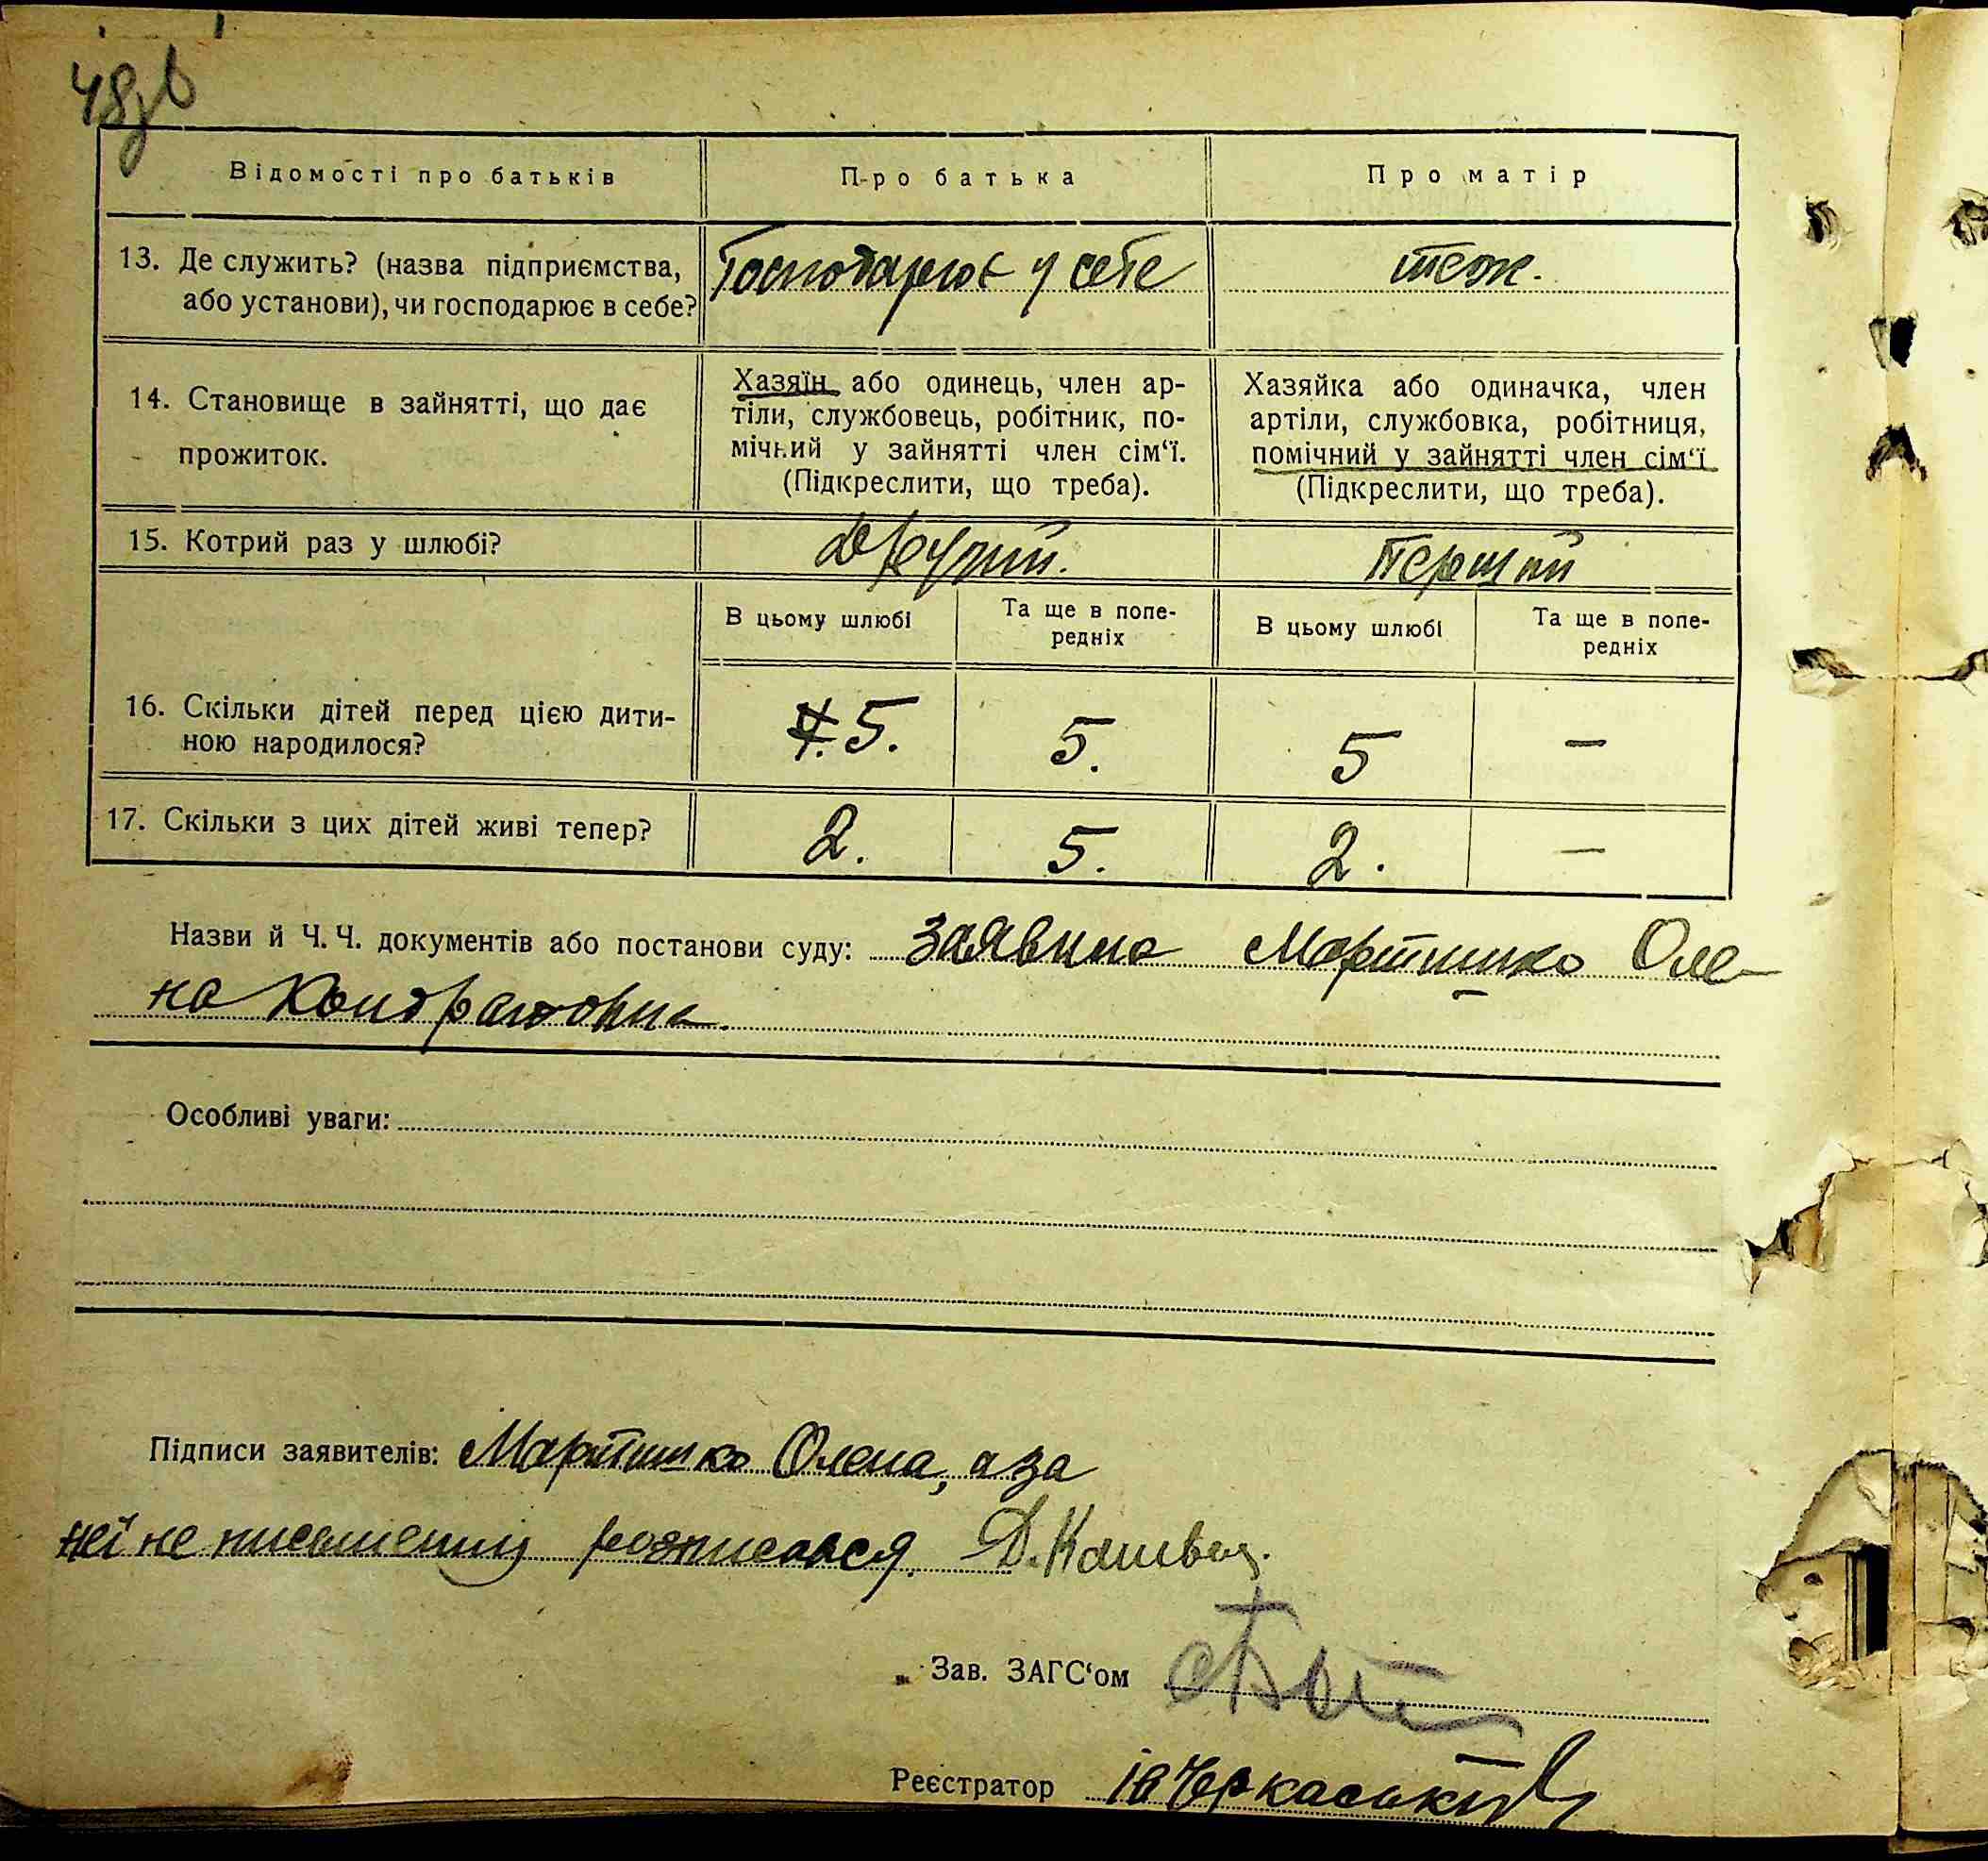 48зв
Відомості про батьків
Про батька
Про матір
13. Де служить? (назва підприємства,
або установи), чи господарює в себе?
Господарює у себе
теж.
14. Становище в зайнятті, що дає
прожиток.
Хазяїн або одинець, член ар-
тіли, службовець, робітник, по-
мічний у зайнятті член сім‘ї.
(Підкреслити, що треба).
Хазяйка або одиначка, член
артіли, службовка, робітниця,
помічний у зайнятті член сім‘ї
(Підкреслити, що треба).
15. Котрий раз у шлюбі?
Другий.
Перший
В цьому шлюбі
Та ще в попе-
редніх
В цьому шлюбі
Та ще в попе-
редніх
16. Скільки дітей перед цією дити-
ною народилося?
4. 5.
5.
5
—
17. Скільки з цих дітей живі тепер?
2.
5.
2.
—
Назви й Ч. Ч. документів або постанови суду: заявила Мартишко Оле-
на Кондратовна.
Особливі уваги:
Підписи заявителів: Мартишко Олена, а за
неї не письменну розписався Д. Кашвец.
Зав. ЗАГС‘ом
Реєстратор Ів Черкаський